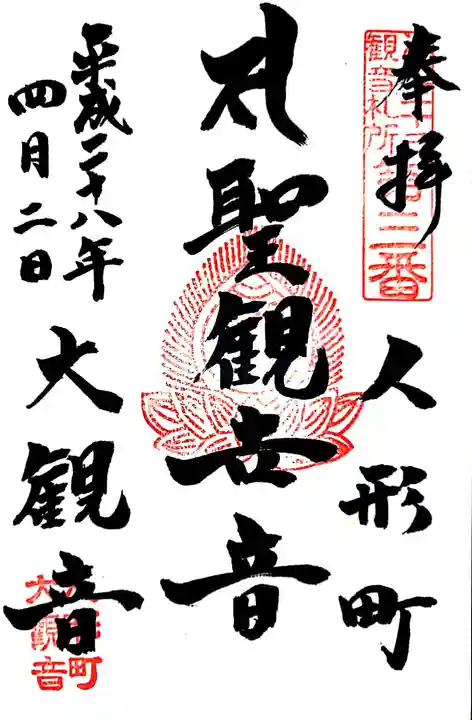 奉拝
観音札所
第三番
人形町
聖観世音
平成二十八年
四月二日
大観音
大観音
町